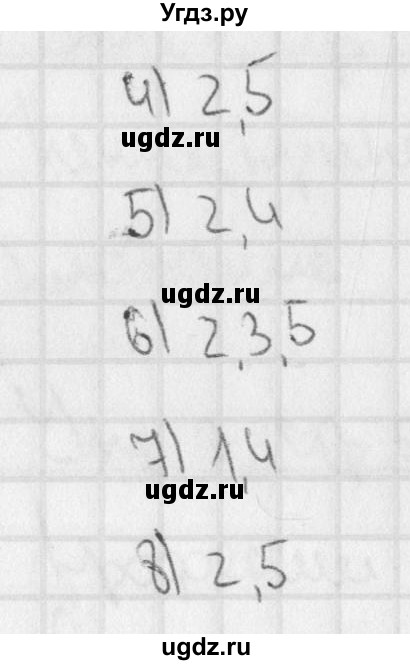 Угдз.ру
4) 2,5
ugdz.ru
5) 2,4
ugdz.ru
6) 2,3,5
7) 1,4
ugdz.ru
8) 2,5
ugdz.ru